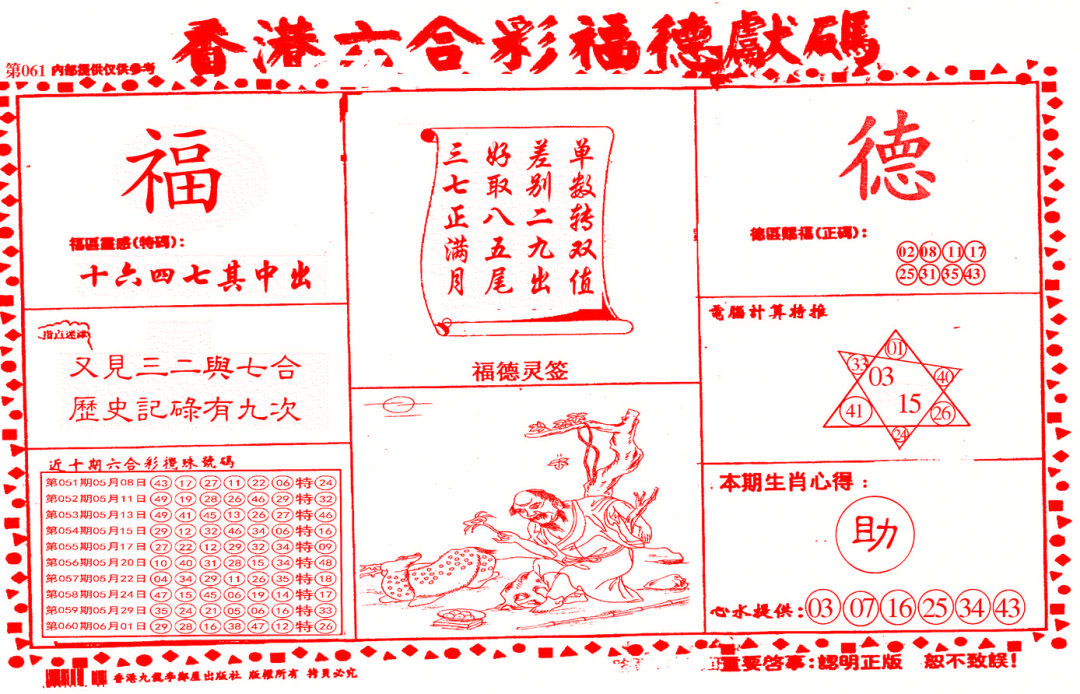 香港六合彩福德獻碼
第061 内部提供仅供参考
福
福區靈感(特碼)：
十六四七其中出
指点迷津
又見三二與七合
歷史記碌有九次
近十期六合彩攪珠號碼
第051期05月08日 43 17 27 11 22 06 特 24
第052期05月11日 49 19 28 26 46 29 特 32
第053期05月13日 49 41 45 13 26 27 特 46
第054期05月15日 29 12 32 46 34 06 特 16
第055期05月17日 27 22 12 29 32 34 特 09
第056期05月20日 10 40 31 28 15 34 特 48
第057期05月22日 04 34 29 11 26 35 特 18
第058期05月24日 47 15 45 06 19 14 特 17
第059期05月29日 35 24 21 05 06 16 特 33
第060期06月01日 29 28 16 38 47 12 特 26
单数转双值
差别二九出
好取八五尾
三七正满月
福德灵签
德
德區賜福(正碼)：
02 08 11 17
25 31 35 43
電腦計算特推
01
33 03 40
41 15 26
24
本期生肖心得：
助
心水提供：03 07 16 25 34 43
香港九龍李鄭屋出版社 版權所有 拷貝必究
重要啓事：認明正版 恕不致誤！